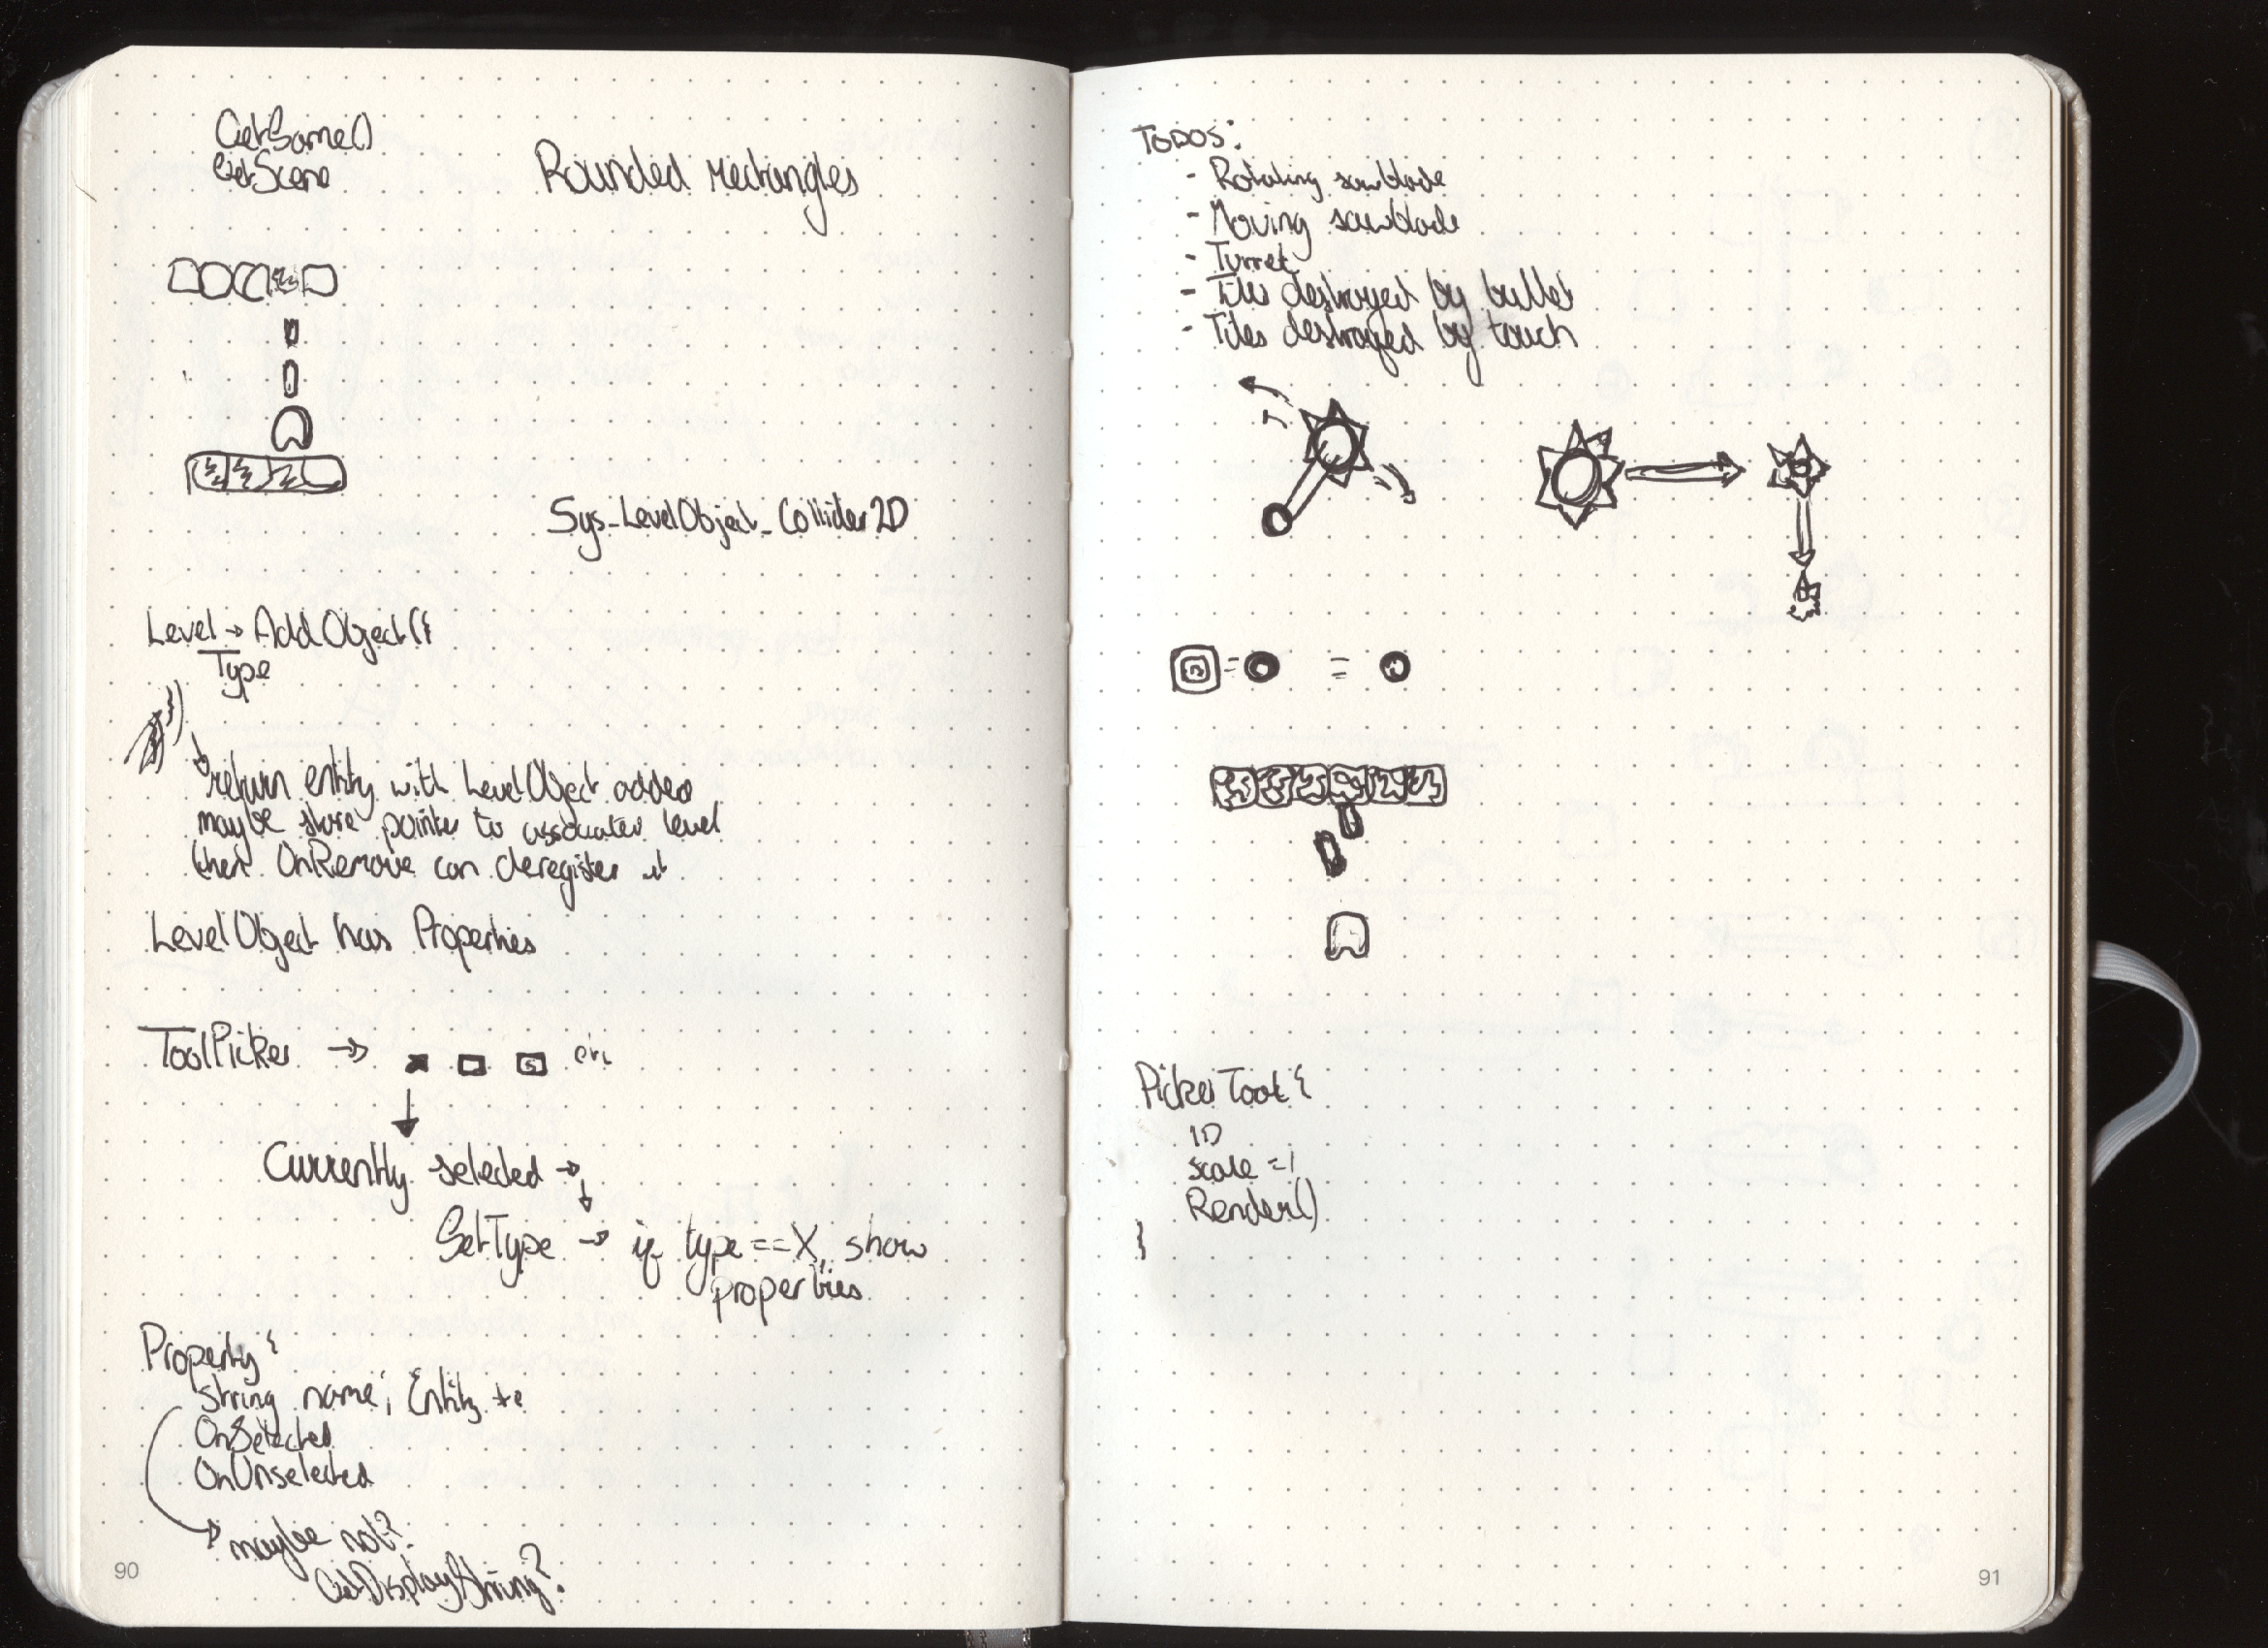 GetGame()
GetScene
Rounded rectangles
Sys_LevelObject_Collider2D
Level → AddObject(
Type
return entity with LevelObject added
maybe store pointer to associated level
then OnRemove can deregister it
LevelObject has Properties
ToolPicker → etc
Currently selected →
SetType → if type==X, show
properties
Property {
string name; Entity *e
OnSelected
OnUnselected
maybe not?
GetDisplayString?
90
TODOS:
- Rotating sawblade
- Moving sawblade
- Turret
- Tiles destroyed by bullet
- Tiles destroyed by touch
= =
PickerTool {
ID
scale =1
Render()
}
91